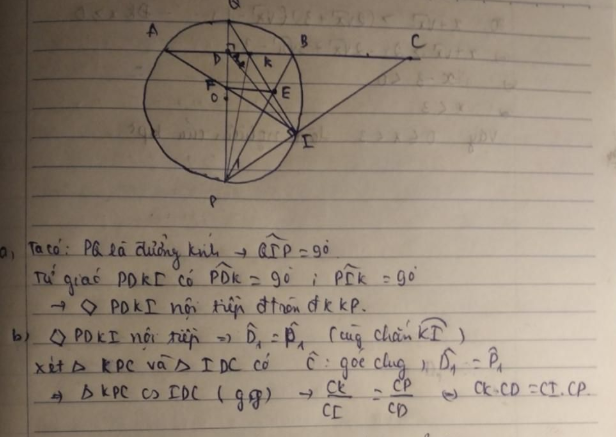 Q
A
B
C
D
K
F
E
O
I
P
a, Ta có: PQ là đường kính → QIP̂ = 90
Tứ giác PDKI có PDK̂ = 90 ; PIK̂ = 90
→ ◇ PDKI nội tiếp đtròn đk KP.
b) ◇ PDKI nội tiếp => D̂₁ = P̂₁ (cùng chắn KI)
xét △ KPC và △ IDC có Ĉ: góc chug, D̂₁ = P̂₁
=> △ KPC ∽ IDC (g.g) → CK/CI = CP/CD => CK.CD = CI.CP.